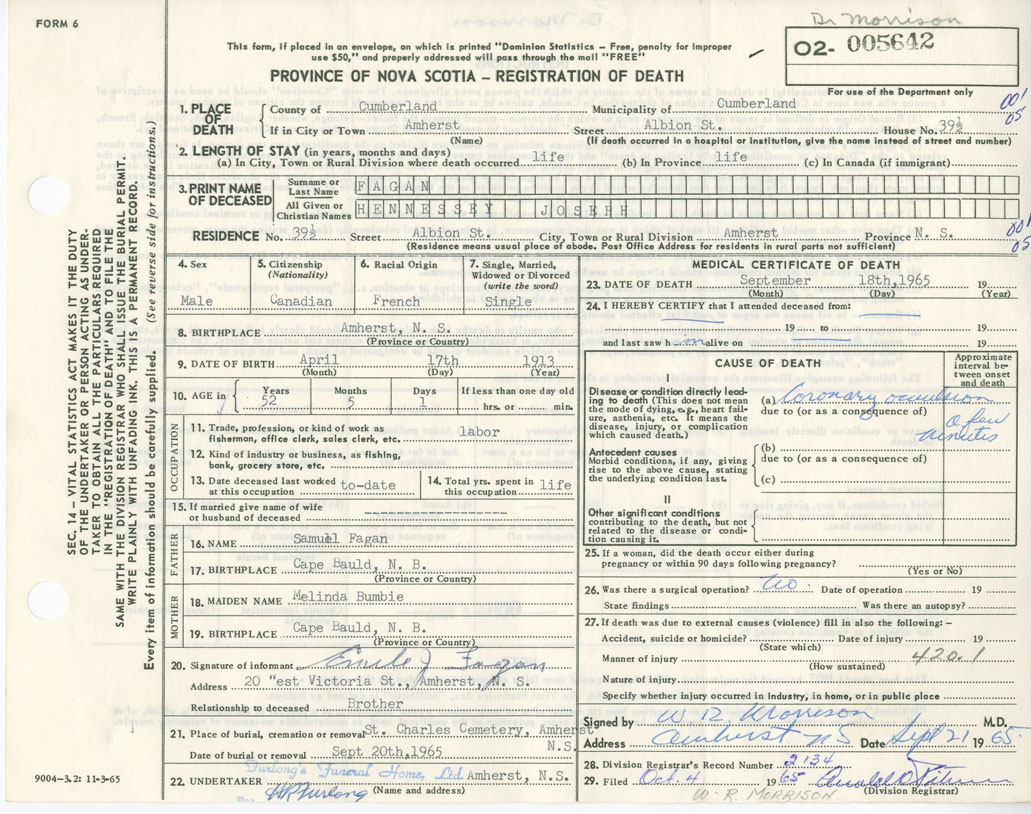 FORM 6
Dr Morrison
This form, if placed in an envelope, on which is printed "Dominion Statistics – Free, penalty for improper
use $50," and properly addressed will pass through the mail "FREE"
O2- 005642
PROVINCE OF NOVA SCOTIA – REGISTRATION OF DEATH
For use of the Department only
1. PLACE OF DEATH
County of Cumberland Municipality of Cumberland
001
05
If in City or Town Amherst Street Albion St. House No. 39½
(Name) (If death occurred in a hospital or institution, give the name instead of street and number)
2. LENGTH OF STAY (in years, months and days)
(a) In City, Town or Rural Division where death occurred life (b) In Province life (c) In Canada (if immigrant)
3. PRINT NAME OF DECEASED
Surname or Last Name FAGAN
All Given or Christian Names HENNESSEY JOSEPH
RESIDENCE No. 39½ Street Albion St. City, Town or Rural Division Amherst Province N. S.
001
05
(Residence means usual place of abode. Post Office Address for residents in rural parts not sufficient)
4. Sex
Male
5. Citizenship
(Nationality)
Canadian
6. Racial Origin
French
7. Single, Married,
Widowed or Divorced
(write the word)
Single
8. BIRTHPLACE Amherst, N. S.
(Province or Country)
9. DATE OF BIRTH April 17th 1913
(Month) (Day) (Year)
10. AGE in
Years Months Days If less than one day old
52 5 1 hrs. or min.
OCCUPATION
11. Trade, profession, or kind of work as
fisherman, office clerk, sales clerk, etc. labor
12. Kind of industry or business, as fishing,
bank, grocery store, etc.
13. Date deceased last worked
at this occupation to-date
14. Total yrs. spent in
this occupation life
15. If married give name of wife
or husband of deceased
FATHER
16. NAME Samuel Fagan
17. BIRTHPLACE Cape Bauld, N. B.
(Province or Country)
MOTHER
18. MAIDEN NAME Melinda Bumbie
19. BIRTHPLACE Cape Bauld, N. B.
(Province or Country)
20. Signature of informant Emile J Fagan
Address 20 "est Victoria St., Amherst, N. S.
Relationship to deceased Brother
21. Place of burial, cremation or removal St. Charles Cemetery, Amherst
N.S.
Date of burial or removal Sept 20th, 1965
Furlong's Funeral Home, Ltd.
22. UNDERTAKER Amherst, N.S.
(Name and address)
Per
MEDICAL CERTIFICATE OF DEATH
23. DATE OF DEATH September 18th, 1965 19
(Month) (Day) (Year)
24. I HEREBY CERTIFY that I attended deceased from:
19 to 19
and last saw h im alive on 19
CAUSE OF DEATH
Approximate
interval be-
tween onset
and death
I
Disease or condition directly lead-
ing to death (This does not mean
the mode of dying, e.g., heart fail-
ure, asthenia, etc. It means the
disease, injury, or complication
which caused death.)
(a) Coronary occlusion
due to (or as a consequence of)
a few
minutes
Antecedent causes
Morbid conditions, if any, giving
rise to the above cause, stating
the underlying condition last.
(b)
due to (or as a consequence of)
(c)
II
Other significant conditions
contributing to the death, but not
related to the disease or condi-
tion causing it.
25. If a woman, did the death occur either during
pregnancy or within 90 days following pregnancy?
(Yes or No)
26. Was there a surgical operation? No Date of operation 19
State findings Was there an autopsy?
27. If death was due to external causes (violence) fill in also the following: –
Accident, suicide or homicide? Date of injury 19
(State which)
Manner of injury 420.1
(How sustained)
Nature of injury
Specify whether injury occurred in industry, in home, or in public place
Signed by W R Morrison M.D.
Address Amherst NS Date Sept 21 1965
28. Division Registrar's Record Number 2134
29. Filed Oct. 4 1965
(Division Registrar)
W. R. MORRISON
SEC. 14 – VITAL STATISTICS ACT MAKES IT THE DUTY
OF THE UNDERTAKER OR PERSON ACTING AS UNDER-
TAKER TO OBTAIN ALL THE PARTICULARS REQUIRED
IN THE "REGISTRATION OF DEATH" AND TO FILE THE
SAME WITH THE DIVISION REGISTRAR WHO SHALL ISSUE THE BURIAL PERMIT.
WRITE PLAINLY WITH UNFADING INK. THIS IS A PERMANENT RECORD.
Every item of information should be carefully supplied. (See reverse side for instructions.)
9004-3.2: 11-3-65